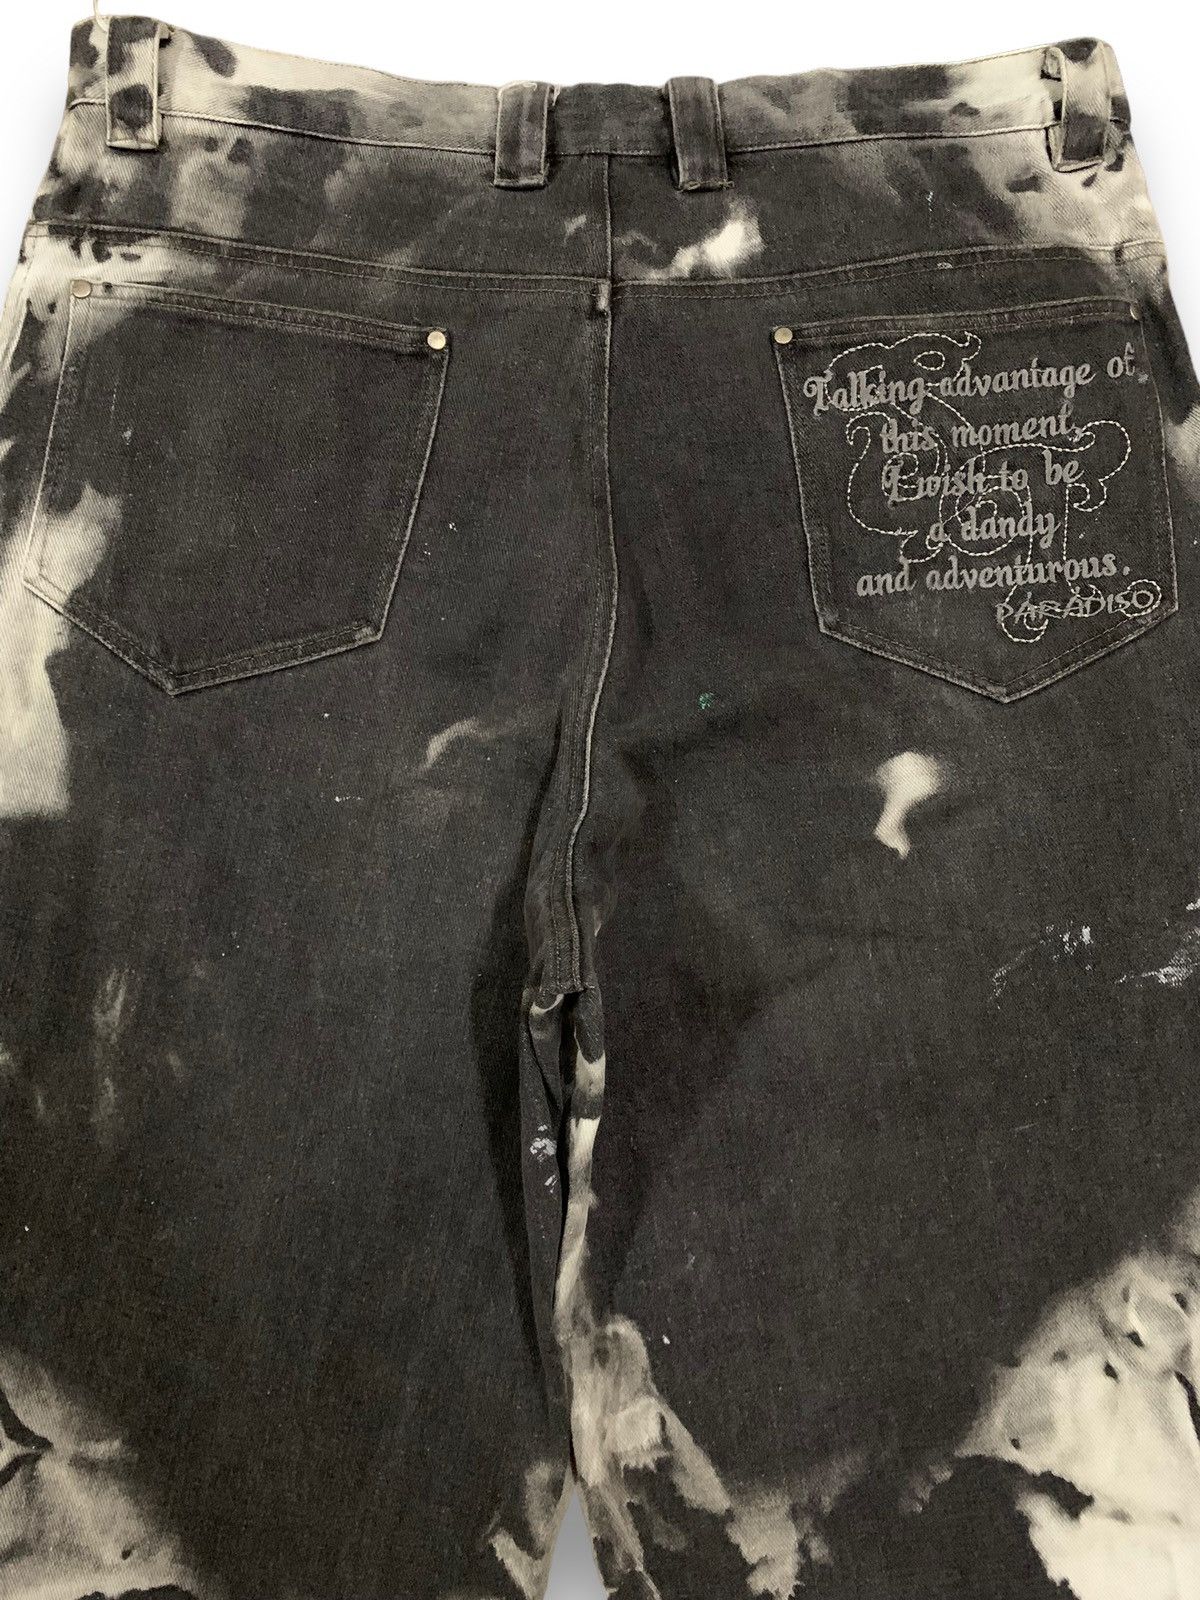 Talking advantage of
this moment,
I wish to be
a dandy
and adventurous.
PARADISO